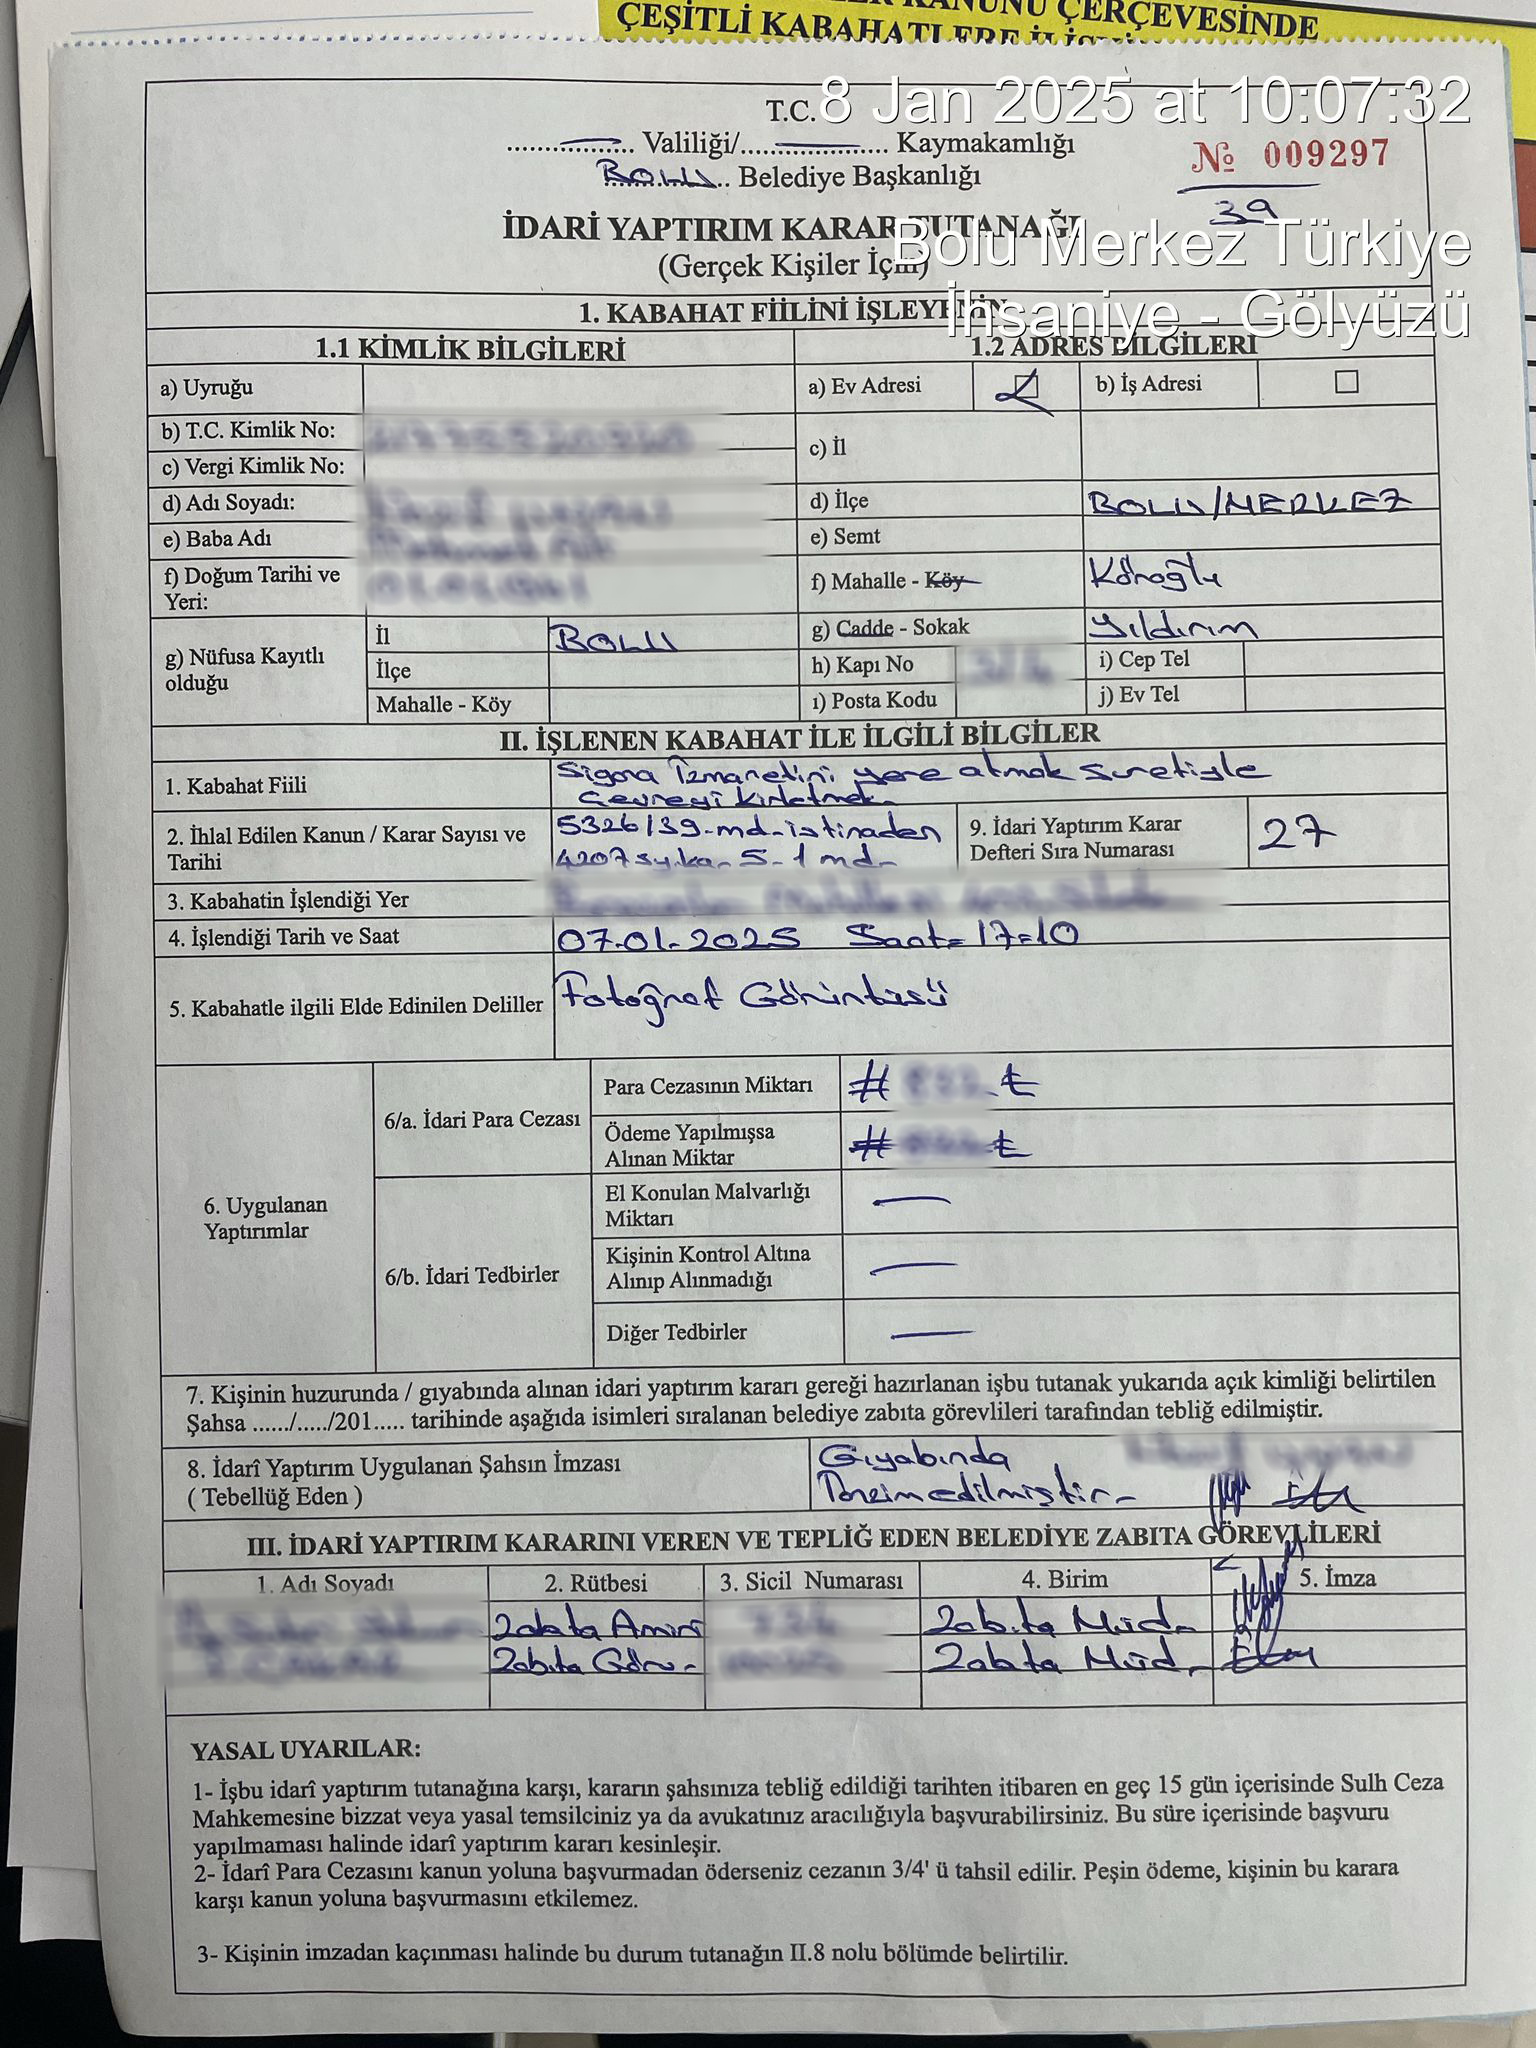 ÇERÇEVESİNDE
ÇEŞİTLİ KABAHATLERE
8 Jan 2025 at 10:07:32
Bolu Merkez Türkiye
İhsaniye - Gölyüzü
T.C.
Valiliği/ Kaymakamlığı
№ 009297
BOLU Belediye Başkanlığı
39
İDARİ YAPTIRIM KARAR TUTANAĞI
(Gerçek Kişiler İçin)
1. KABAHAT FİİLİNİ İŞLEYENİN
1.1 KİMLİK BİLGİLERİ 1.2 ADRES BİLGİLERİ
a) Uyruğu a) Ev Adresi b) İş Adresi
b) T.C. Kimlik No:
c) İl
c) Vergi Kimlik No:
d) Adı Soyadı: d) İlçe BOLU/MERKEZ
e) Baba Adı e) Semt
f) Doğum Tarihi ve
Yeri:
f) Mahalle - Köy Köroğlu
g) Nüfusa Kayıtlı
olduğu
İl BOLU g) Cadde - Sokak Yıldırım
İlçe h) Kapı No i) Cep Tel
Mahalle - Köy ı) Posta Kodu j) Ev Tel
II. İŞLENEN KABAHAT İLE İLGİLİ BİLGİLER
1. Kabahat Fiili
Sigara İzmaretini yere atmak suretiyle
Çevreyi Kirletmek
2. İhlal Edilen Kanun / Karar Sayısı ve
Tarihi
5326/39-md-istinaden
4207 sy.ka- 5-1 md-
9. İdari Yaptırım Karar
Defteri Sıra Numarası
27
3. Kabahatin İşlendiği Yer
4. İşlendiği Tarih ve Saat 07.01.2025 Saat= 17=10
5. Kabahatle ilgili Elde Edinilen Deliller Fotoğraf Görüntüsü
6. Uygulanan
Yaptırımlar
6/a. İdari Para Cezası
Para Cezasının Miktarı # ₺
Ödeme Yapılmışsa
Alınan Miktar
# ₺
6/b. İdari Tedbirler
El Konulan Malvarlığı
Miktarı
Kişinin Kontrol Altına
Alınıp Alınmadığı
Diğer Tedbirler
7. Kişinin huzurunda / gıyabında alınan idari yaptırım kararı gereği hazırlanan işbu tutanak yukarıda açık kimliği belirtilen
Şahsa ....../...../201..... tarihinde aşağıda isimleri sıralanan belediye zabıta görevlileri tarafından tebliğ edilmiştir.
8. İdarî Yaptırım Uygulanan Şahsın İmzası
( Tebellüğ Eden )
Gıyabında
Tanzim edilmiştir-
III. İDARİ YAPTIRIM KARARINI VEREN VE TEPLİĞ EDEN BELEDİYE ZABITA GÖREVLİLERİ
1. Adı Soyadı 2. Rütbesi 3. Sicil Numarası 4. Birim 5. İmza
Zabıta Amiri Zabıta Müd-
Zabıta Görv- Zabıta Müd-
YASAL UYARILAR:
1- İşbu idarî yaptırım tutanağına karşı, kararın şahsınıza tebliğ edildiği tarihten itibaren en geç 15 gün içerisinde Sulh Ceza
Mahkemesine bizzat veya yasal temsilciniz ya da avukatınız aracılığıyla başvurabilirsiniz. Bu süre içerisinde başvuru
yapılmaması halinde idarî yaptırım kararı kesinleşir.
2- İdarî Para Cezasını kanun yoluna başvurmadan öderseniz cezanın 3/4' ü tahsil edilir. Peşin ödeme, kişinin bu karara
karşı kanun yoluna başvurmasını etkilemez.
3- Kişinin imzadan kaçınması halinde bu durum tutanağın II.8 nolu bölümde belirtilir.